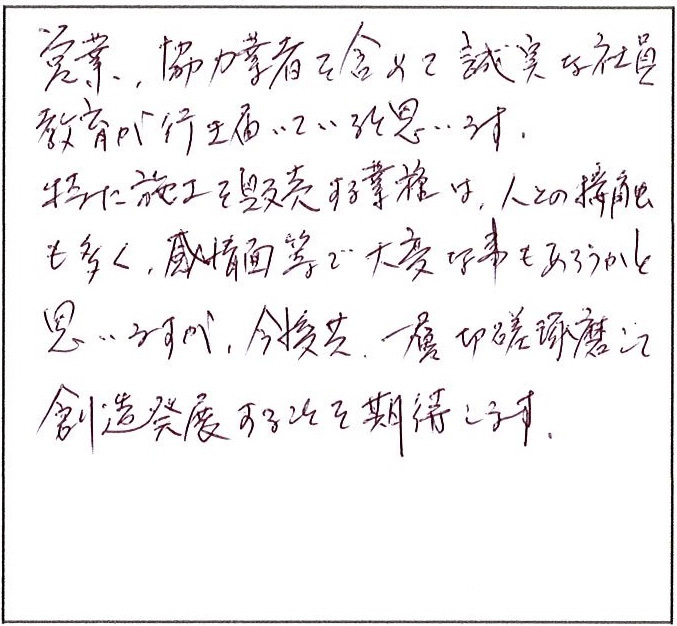 営業、協力業者を含めて誠実な社員
教育が行き届いていると思います。
特に施工を販売する業種は、人との接触
も多く、感情面等で大変な事もあろうかと
思いますが、今後共、一層切磋琢磨して
創造発展することを期待します。